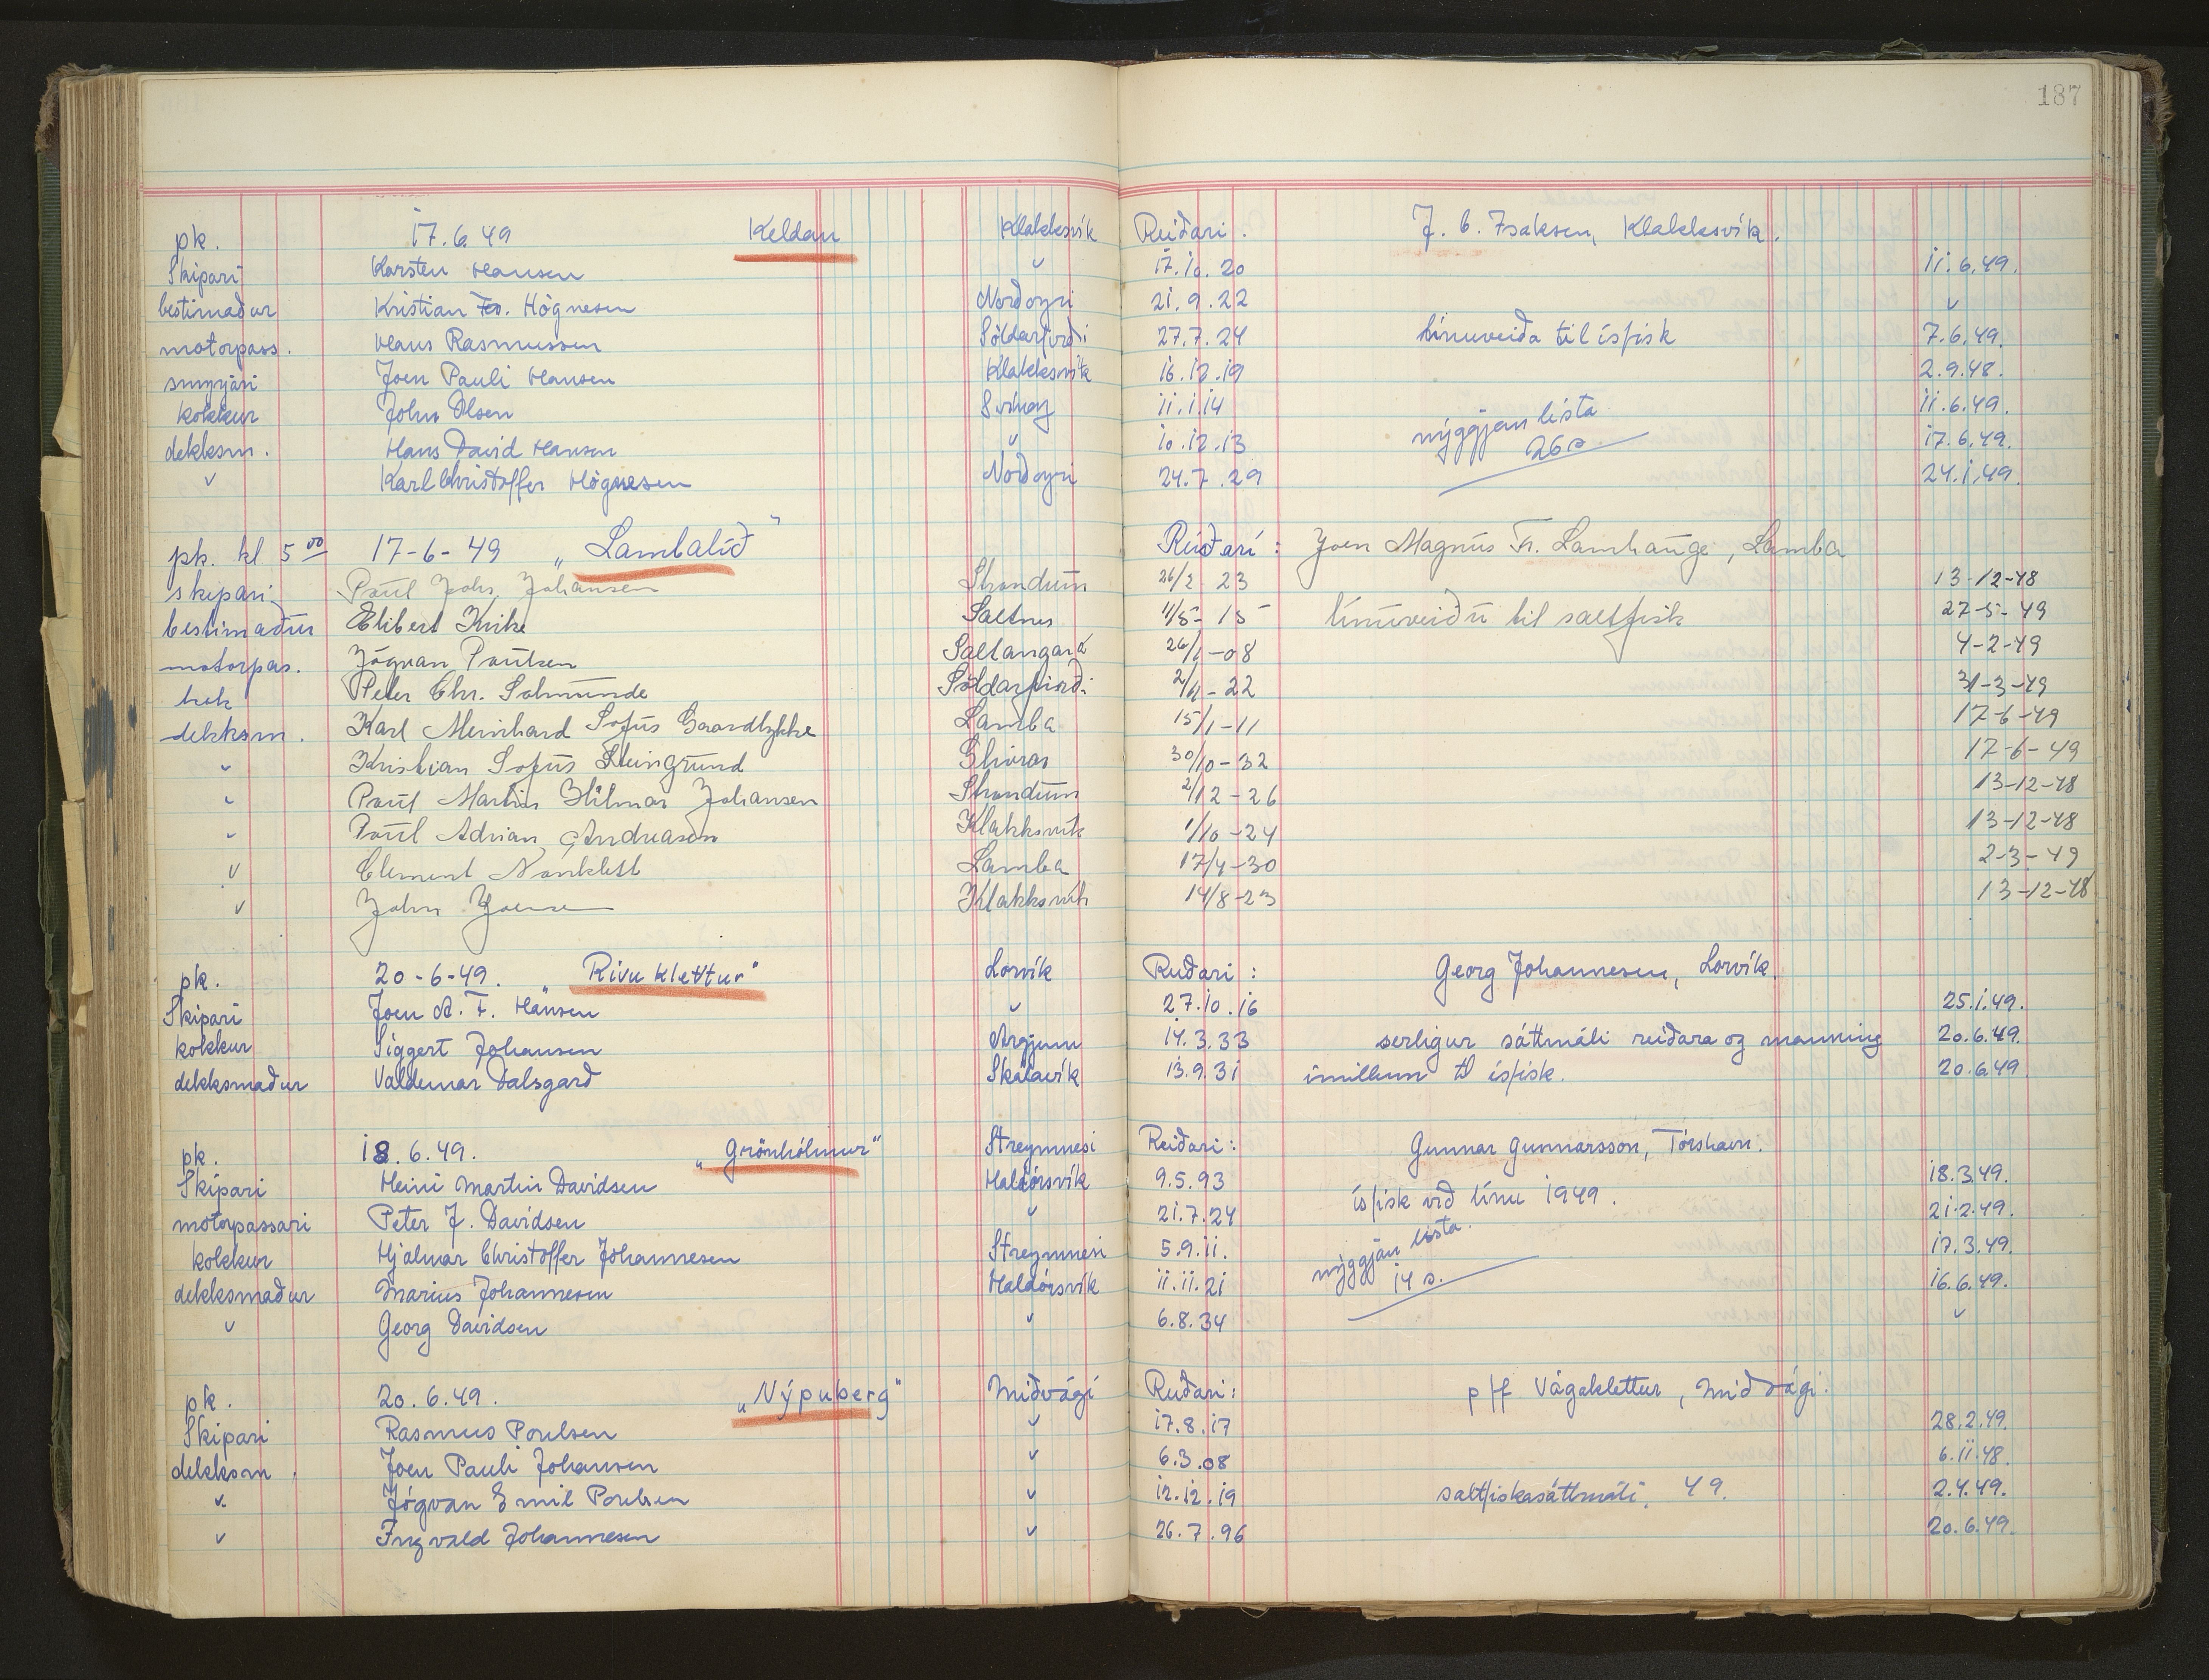 187
pk. 17.6.49 Keldan Klakksvík Reiðari. J. C. Isaksen, Klakksvík.
Skipari Karsten Hansen " 17.10.20 11.6.49.
bestimaður Kristian Fr. Högnesen Norðoyri 21.9.22 "
motorpass. Hans Rasmussen Söldarfirði 27.7.24 línuveiða til ísfisk 7.6.49.
smyrjari Joen Pauli Hansen Klakksvík 16.12.19 2.9.48.
kokkur John Olsen Svínoy 11.1.14 nýggjan lista 11.6.49.
dekksm. Hans David Hansen " 10.12.13 26 17.6.49.
" Karl Christoffer Högnesen Norðoyri 24.7.29 24.1.49.
pk. kl 5 00 17-6-49 „Lambalíð" Reiðari: Joen Magnus Fr. Lamhauge, Lamba
skipari Poul Johs. Johansen Strondum 26/2-23 13-12-48
bestimaður Elibert Krike Saltnes 11/5-15 línuveiðu til saltfisk 27-5-49
motorpas. Jógvan Poulsen Saltangará 26/1-08 4-2-49
kok Peter Chr. Solmunde Söldarfirði 2/4-22 31-3-49
dekksm. Karl Meinhard Sofus Gaardlykke Lamba 15/1-11 17-6-49
" Kristian Sofus Steingrund Glivrar 30/10-32 17-6-49
" Poul Martin Hilmar Johansen Strondum 2/12-26 13-12-48
" Poul Adrian Andreasen Klakksvík 1/10-24 13-12-48
" Clement Nonklett Lamba 17/4-30 2-3-49
" John Joensen Klakksvík 14/8-23 13-12-48
pk. 20-6-49. Rivuklettur" Lorvík Reiðari: Georg Johannesen, Lorvík.
Skipari Joen A. F. Hansen " 27.10.16 25.1.49.
kokkur Siggert Johansen Argjum 14.3.33 serligur sáttmáli reiðara og manning 20.6.49.
dekksmaður Valdemar Dalsgarð Skálavík 13.9.31 ímillum til ísfisk. 20.6.49
pk. 18.6.49. „Grönhólmur" Streymnesi Reiðari: Gunnar Gunnarsson, Tórshavn.
Skipari Heini Martin Davidsen Haldórsvík 9.5.93 18.3.49.
motorpassari Peter J. Davidsen " 21.7.24 ísfisk við línu 1949. 21.2.49.
kokkur Hjalmar Christoffer Johannesen Streymnesi 5.9.11. nýggjan lista. 17.3.49.
dekksmaður Marius Johannesen Haldórsvík 11.11.21 14 s. 16.6.49.
" Georg Davidsen " 6.8.34 "
pk. 20.6.49. „Nýpuberg" Miðvági Reiðari: p/f Vágaklettur, Miðvági.
Skipari Rasmus Poulsen " 17.8.17 28.2.49.
dekksm. Joen Pauli Johansen " 6.3.08 6.11.48.
" Jógvan Emil Poulsen " 12.12.19 saltfiskasáttmáli, 49. 2.4.49.
" Ingvald Johannesen " 26.7.96 20.6.49.